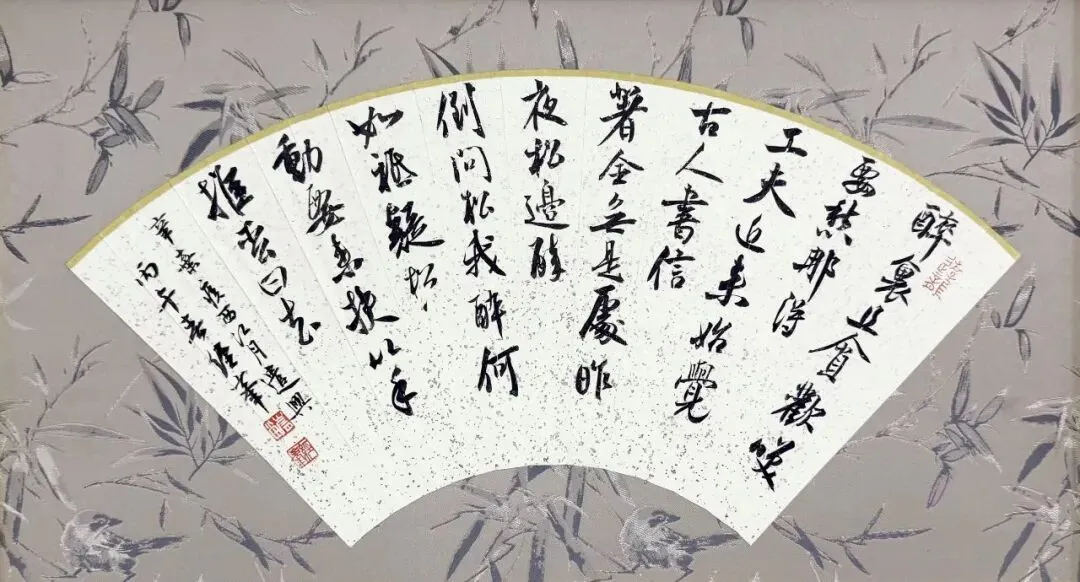 醉裏且貪歡笑
要愁那得
工夫近来始覺
古人書信
著全无是處昨
夜松邊醉
倒問松我醉何
如祗疑松
動要来扶以手
推松曰去
辛棄疾西江月遣興
丙午春